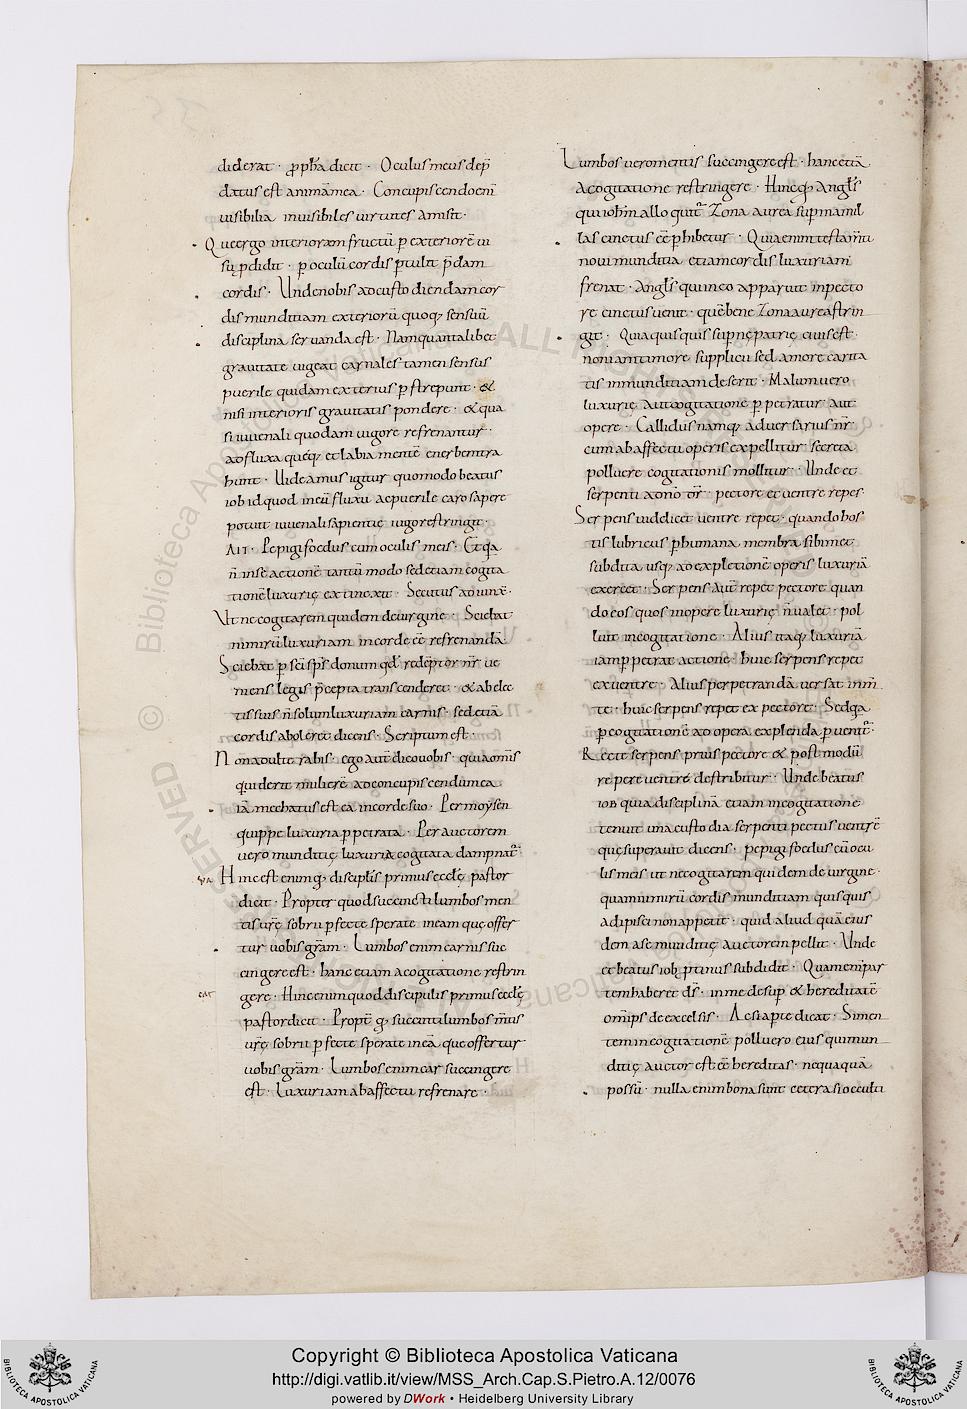 diderat · ꝓpha dicit · Oculus meus dep̄
datus est animã mea · Concupiscendo enī
uisibilia inuisibiles uirtutes amisit·
Que ergo interiorem fructū ꝑ exteriorē ui
sū ꝑdidit · ꝑ oculū cordis ꝑtulit p̄dam
cordis · Unde nobis ad custodiendam cor
dis munditiam exteriorū quoq; sensuū
disciplina seruanda est · Nam quantalibet
grauitate uigeat carnales tamen sensus
puerile quidam exterius ꝑstrepunt · &
nisi interioris grauitatis pondere · & qua
si iuuenali quodam uigore refrenantur ·
ad fluxa quęq; et labia mentē eneruem tra
hunt · Uideamus igitur quomodo beatus
iob id quod ineū fluxu ac puerile caro sapere
potuit iuuenali sapientię uigore stringit·
AIT · Pepigi foedus cum oculis meis · Et q̄a
n̄ in se actionē tantū modo sed etiam cogita
tionē luxurię extinxit · Secutus adiunx̄·
Ut ne cogitarem quidem de uirgine · Sciebat
nimirū luxuriam in corde eē refrenandā·
Sciebat ꝑ sc̄i sp̄s donum qd̄ redēptor nr̄ ue
niens legis p̄cepta transcenderet · & ab elec
tis suis n̄ solum luxuriam carnis · sed etiā
cordis aboleret dicens · Scriptum est ·
Non adulterabis · ego autē dico uobis · quia om̄is
qui uiderit mulierē ad concupiscendum ea
iā mechatus est eā in corde suo · Per moysen
quippe luxuria ꝑpetrata · Per auctorem
uero munditię luxuria cogitata dampnat̄·
Hinc est enim ꝙ discipłis primus eccłę pastor
dicit · Propter quod succincti lumbos men
tis urę̄ sobrii ꝑfecte sperate in eam que offer
tur uobis gr̄am · Lumbos enim carnis suc
cingere est · hanc etiam a cogitatione restrin
gere · Hinc enim quod discipulis primus eccłę
pastor dicit · Propt̄ ꝙ succincti lumbos mēntis
urę̄ sobrii ꝑfecte sperate in eā que offertur
uobis gr̄am · Lumbos enim car succingere
est · Luxuriam ab affectu refrenare ·
Lumbos uero mentis succingere est · hanc etiā
a cogitatione restringere · Hinc ꝙ angłs
qui ioh̄m alloquit̄ Zona aurea sup̄ mamil
las cinctus eē ꝑhibetur · Quia enim testam̄ti
noui munditia etiam cordis luxuriam
frenat · angłs qui in eo apparuit in pecto
re cinctus uenit · quē bene zona aurea strin
git · Quia quisquis supernę patrię ciuis est ·
non iam timore supplicii sed amore carita
tis inmunditiam deserit · Malum uero
luxurię aut cogitatione ꝑpetratur aut
opere · Callidus namq; aduersarius nr̄·
cum ab affectu operis expellitur · secreta
polluere cogitationis mollitur · Unde et
serpenti a dn̄o dr̄ · pectore et uentre repes·
Serpens uidelicet uentre repet · quando hos
tis lubricus ꝑ humana membra sibimet
subdita usq; ad expletionē operis luxuriā
exercet · Serpens aut̄ repet pectore quan
do eos quos in opere luxurię n̄ ualet · pol
luit in cogitatione · Alius itaq; luxuriā
iam ꝑpetrat actione · huic serpens repet
ex uentre · Alius perpetrandā uersat in m̄
te · huic serpens repet ex pectore · Sed q̄a
ꝑ cogitationē ad opera explenda ꝑuenit̄·
Recte serpens prius pectore & postmodū
repere uentre describitur · Unde beatus
iob quia disciplinā etiam in cogitatione
tenuit una custodia serpenti pectus uentrē
quę superauit dicens · pepigi foedus cū ocu
lis meis ut ne cogitarem quidem de uirgine ·
quam nimirū cordis munditiam quisquis
adipisci non appetit · quid aliud quā eius
dem a se munditię auctorem pellit · Unde
et beatus iob ꝓtinus subdidit · Quam enim par
tem haberet ds̄ · in me desup̄ & hereditatē
om̄ips de excelsis · Ac si aperte dicat · Si men
tem in cogitationē polluero eius qui mun
ditię auctor est eē hereditas · nequaquā
possū · nulla enim bona sunt cetera si occulti
Copyright © Biblioteca Apostolica Vaticana
http://digi.vatlib.it/view/MSS_Arch.Cap.S.Pietro.A.12/0076
powered by DWork • Heidelberg University Library